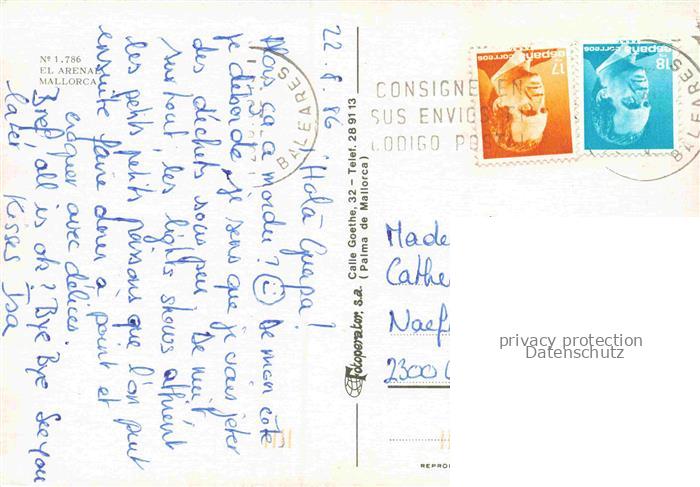 Nº 1.786
EL ARENAL
MALLORCA
22.8.86
¡Holà Guapa!
Alors ça a mordu? De mon côté
je déborde. Je sens que je vais jeter
des déchets sous peu. De nuit
surtout, les lights shows attirent
les petits petits poissons que l'on peut
ensuite faire dorer à point et
croquer avec délices.
Bref, all is ok? Bye Bye See you
later Kisses Isa
Fotoperator, s.a. Calle Goethe, 32 – Telef. 28 91 13
(Palma de Mallorca)
CONSIGNE EN
SUS ENVIOS
CODIGO POS
BALEARES
BALEARES
17
españa correos
18
españa correos
Made
Cathe
Naef
2300
privacy protection
Datenschutz
REPROD